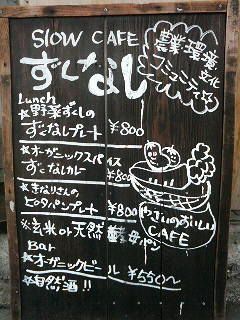 SLOW CAFE
ずくなし
農業 環境
文化
コミュニティ
Lunch
★野菜ずくしの
ずくなしプレート ¥800
★オーガニックスパイス
ずくなしカレー ¥800
★きなりさんの
ピタパンプレート ¥800
※玄米or天然酵母パン
Bar
★オーガニックビール ¥550〜
★自然酒!!
やさいのおいしい
CAFE